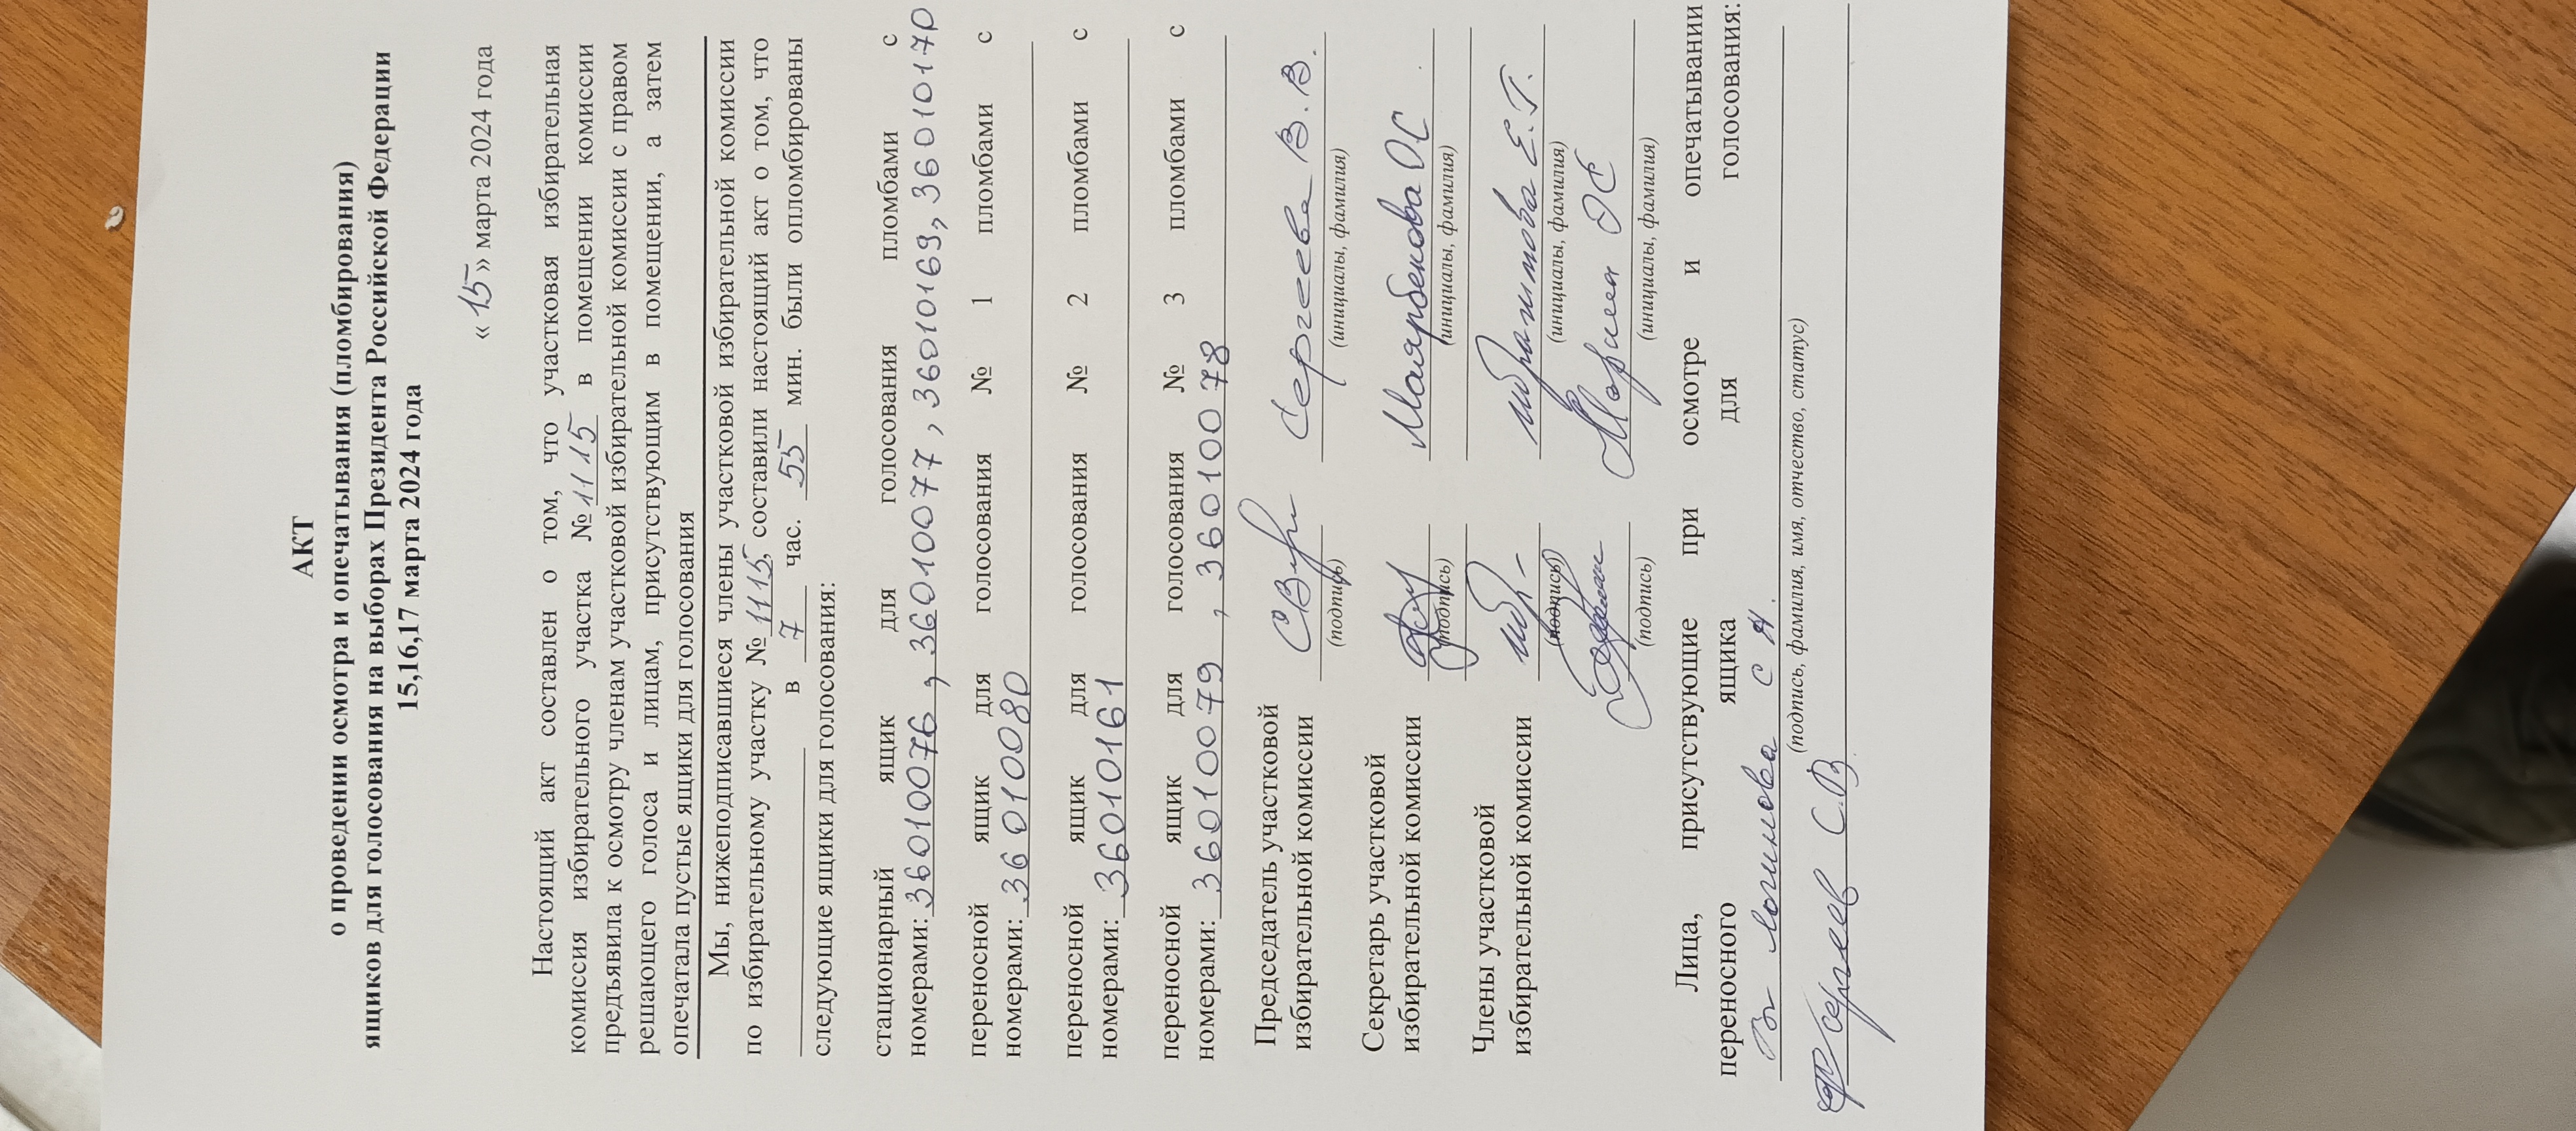 АКТ
о проведении осмотра и опечатывания (пломбирования)
ящиков для голосования на выборах Президента Российской Федерации
15,16,17 марта 2024 года
« 15 » марта 2024 года
Настоящий акт составлен о том, что участковая избирательная
комиссия избирательного участка № 1115 в помещении комиссии
предъявила к осмотру членам участковой избирательной комиссии с правом
решающего голоса и лицам, присутствующим в помещении, а затем
опечатала пустые ящики для голосования
Мы, нижеподписавшиеся члены участковой избирательной комиссии
по избирательному участку № 1115, составили настоящий акт о том, что
в 7 час. 55 мин. были опломбированы
следующие ящики для голосования:
стационарный ящик для голосования пломбами с
номерами: 36010076, 36010077, 36010169, 36010170
переносной ящик для голосования № 1 пломбами с
номерами: 36010080
переносной ящик для голосования № 2 пломбами с
номерами: 36010161
переносной ящик для голосования № 3 пломбами с
номерами: 36010079, 36010078
Председатель участковой
избирательной комиссии Сергеева В.В.
(подпись) (инициалы, фамилия)
Секретарь участковой
избирательной комиссии Маярбекова ОС
(подпись) (инициалы, фамилия)
Члены участковой
избирательной комиссии Ибрагимова Е.Г.
(подпись) (инициалы, фамилия)
(подпись) (инициалы, фамилия)
Лица, присутствующие при осмотре и опечатывании
переносного ящика для голосования:
Логинова С Я.
(подпись, фамилия, имя, отчество, статус)
Сергеев С.В.